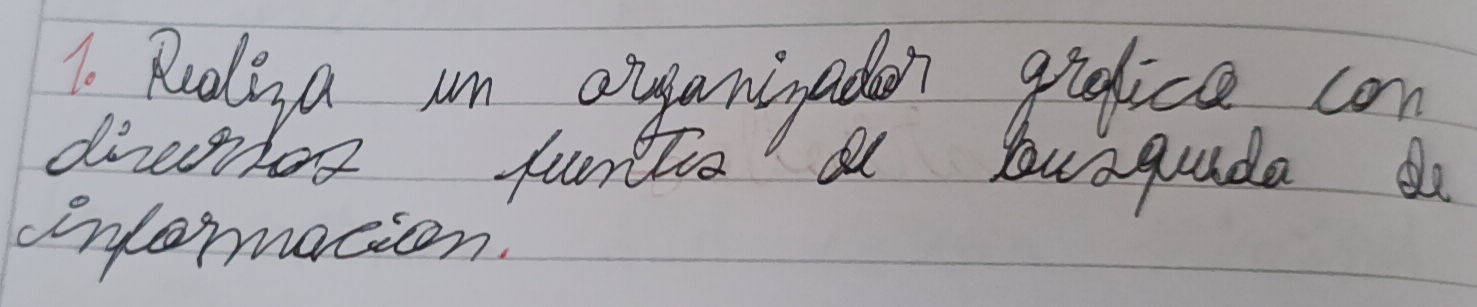 1. Realiza un organizador grafico con
diversos fuentes de busqueda de
informacion.